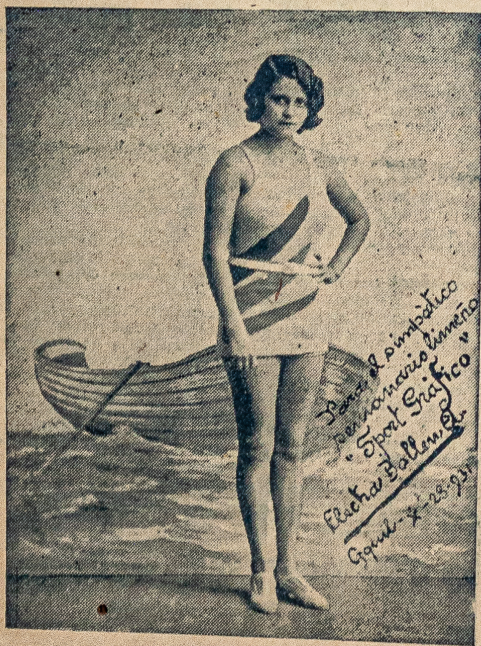 Para el simpático
semanario limeño
"Sport Gráfico"
Electra Ballen
Gquil-X-28-931